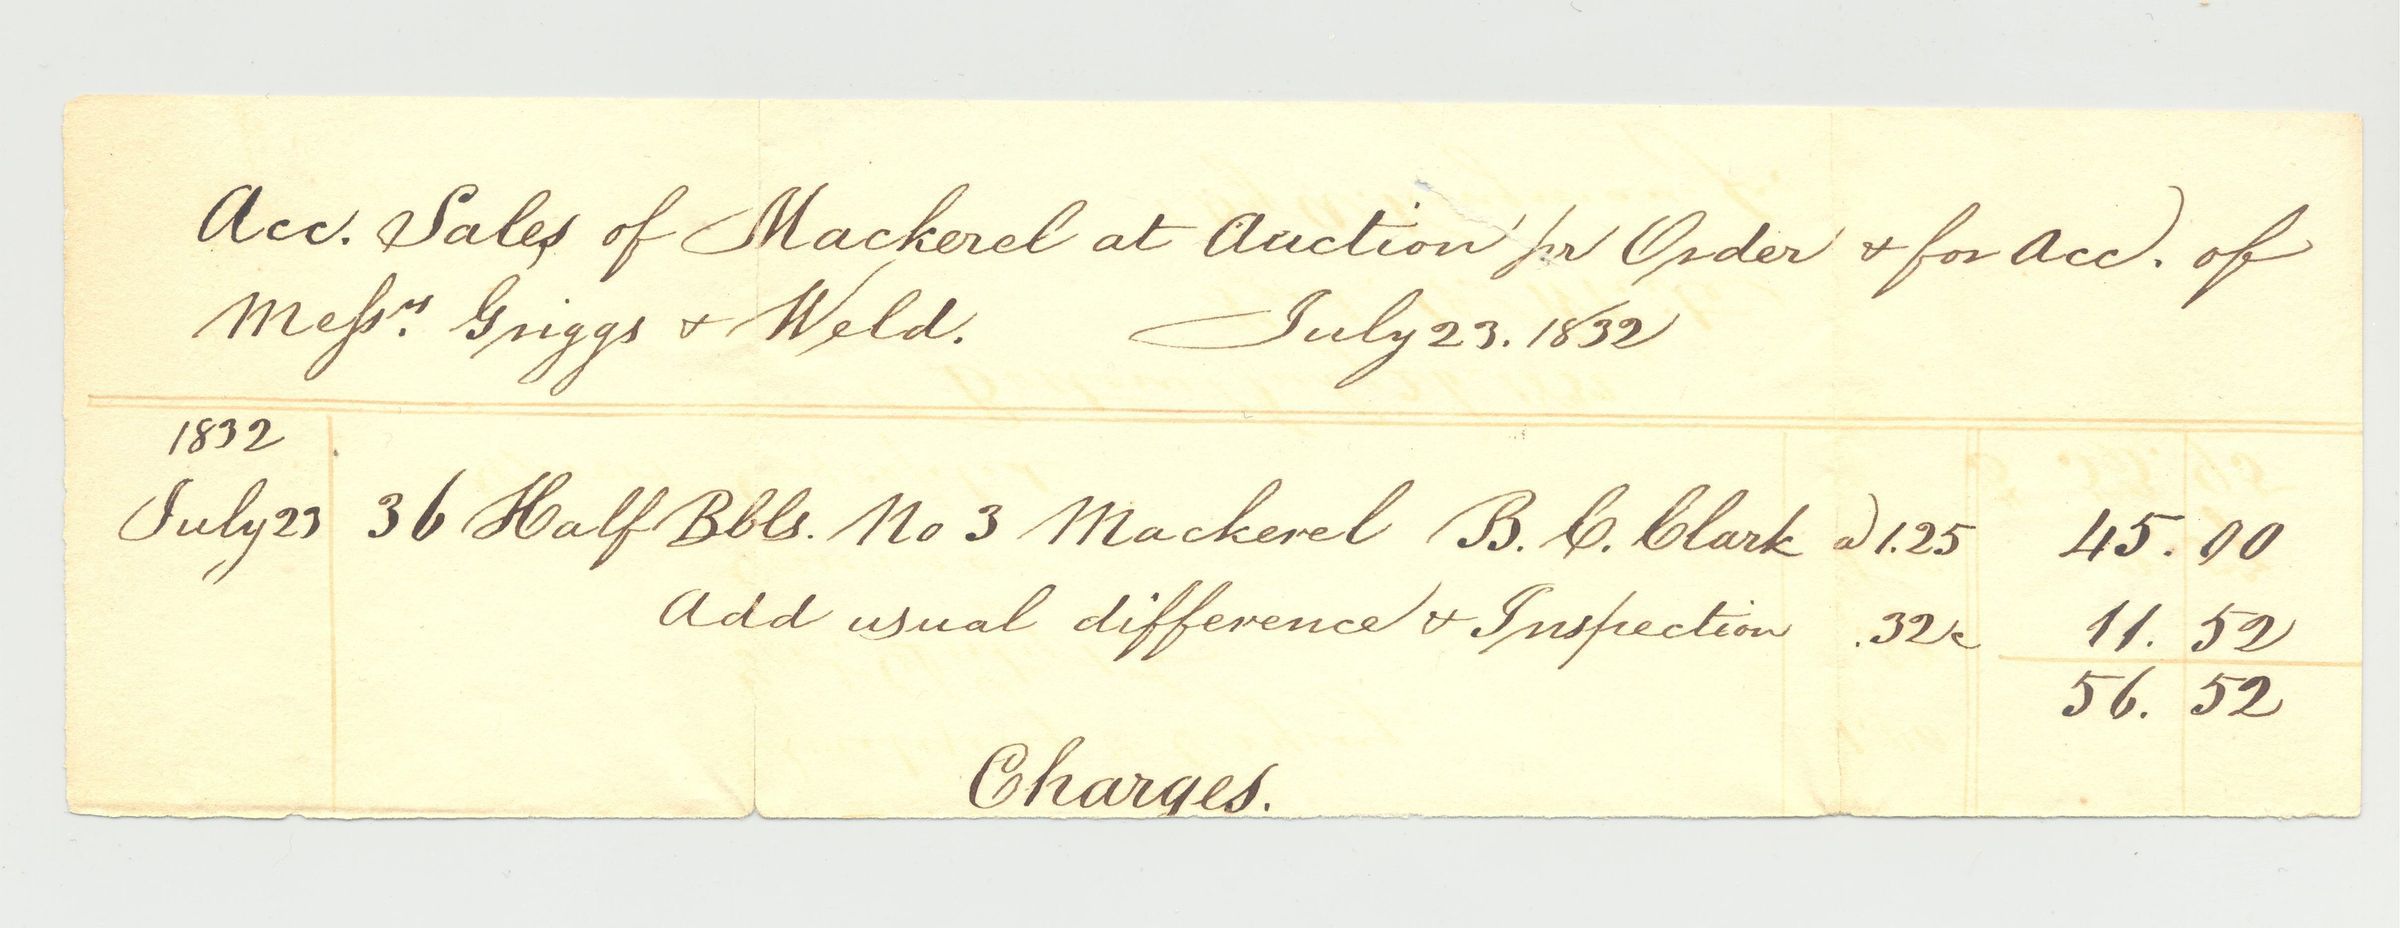 Acc. Sales of Mackerel at Auction pr Order & for Acc. of
Messrs. Griggs & Weld. July 23. 1832
1832
July 23 36 Half Bbls. No 3 Mackerel B. C. Clark a 1.25 45.00
Add usual difference & Inspection .32c 11.52
56.52
Charges.